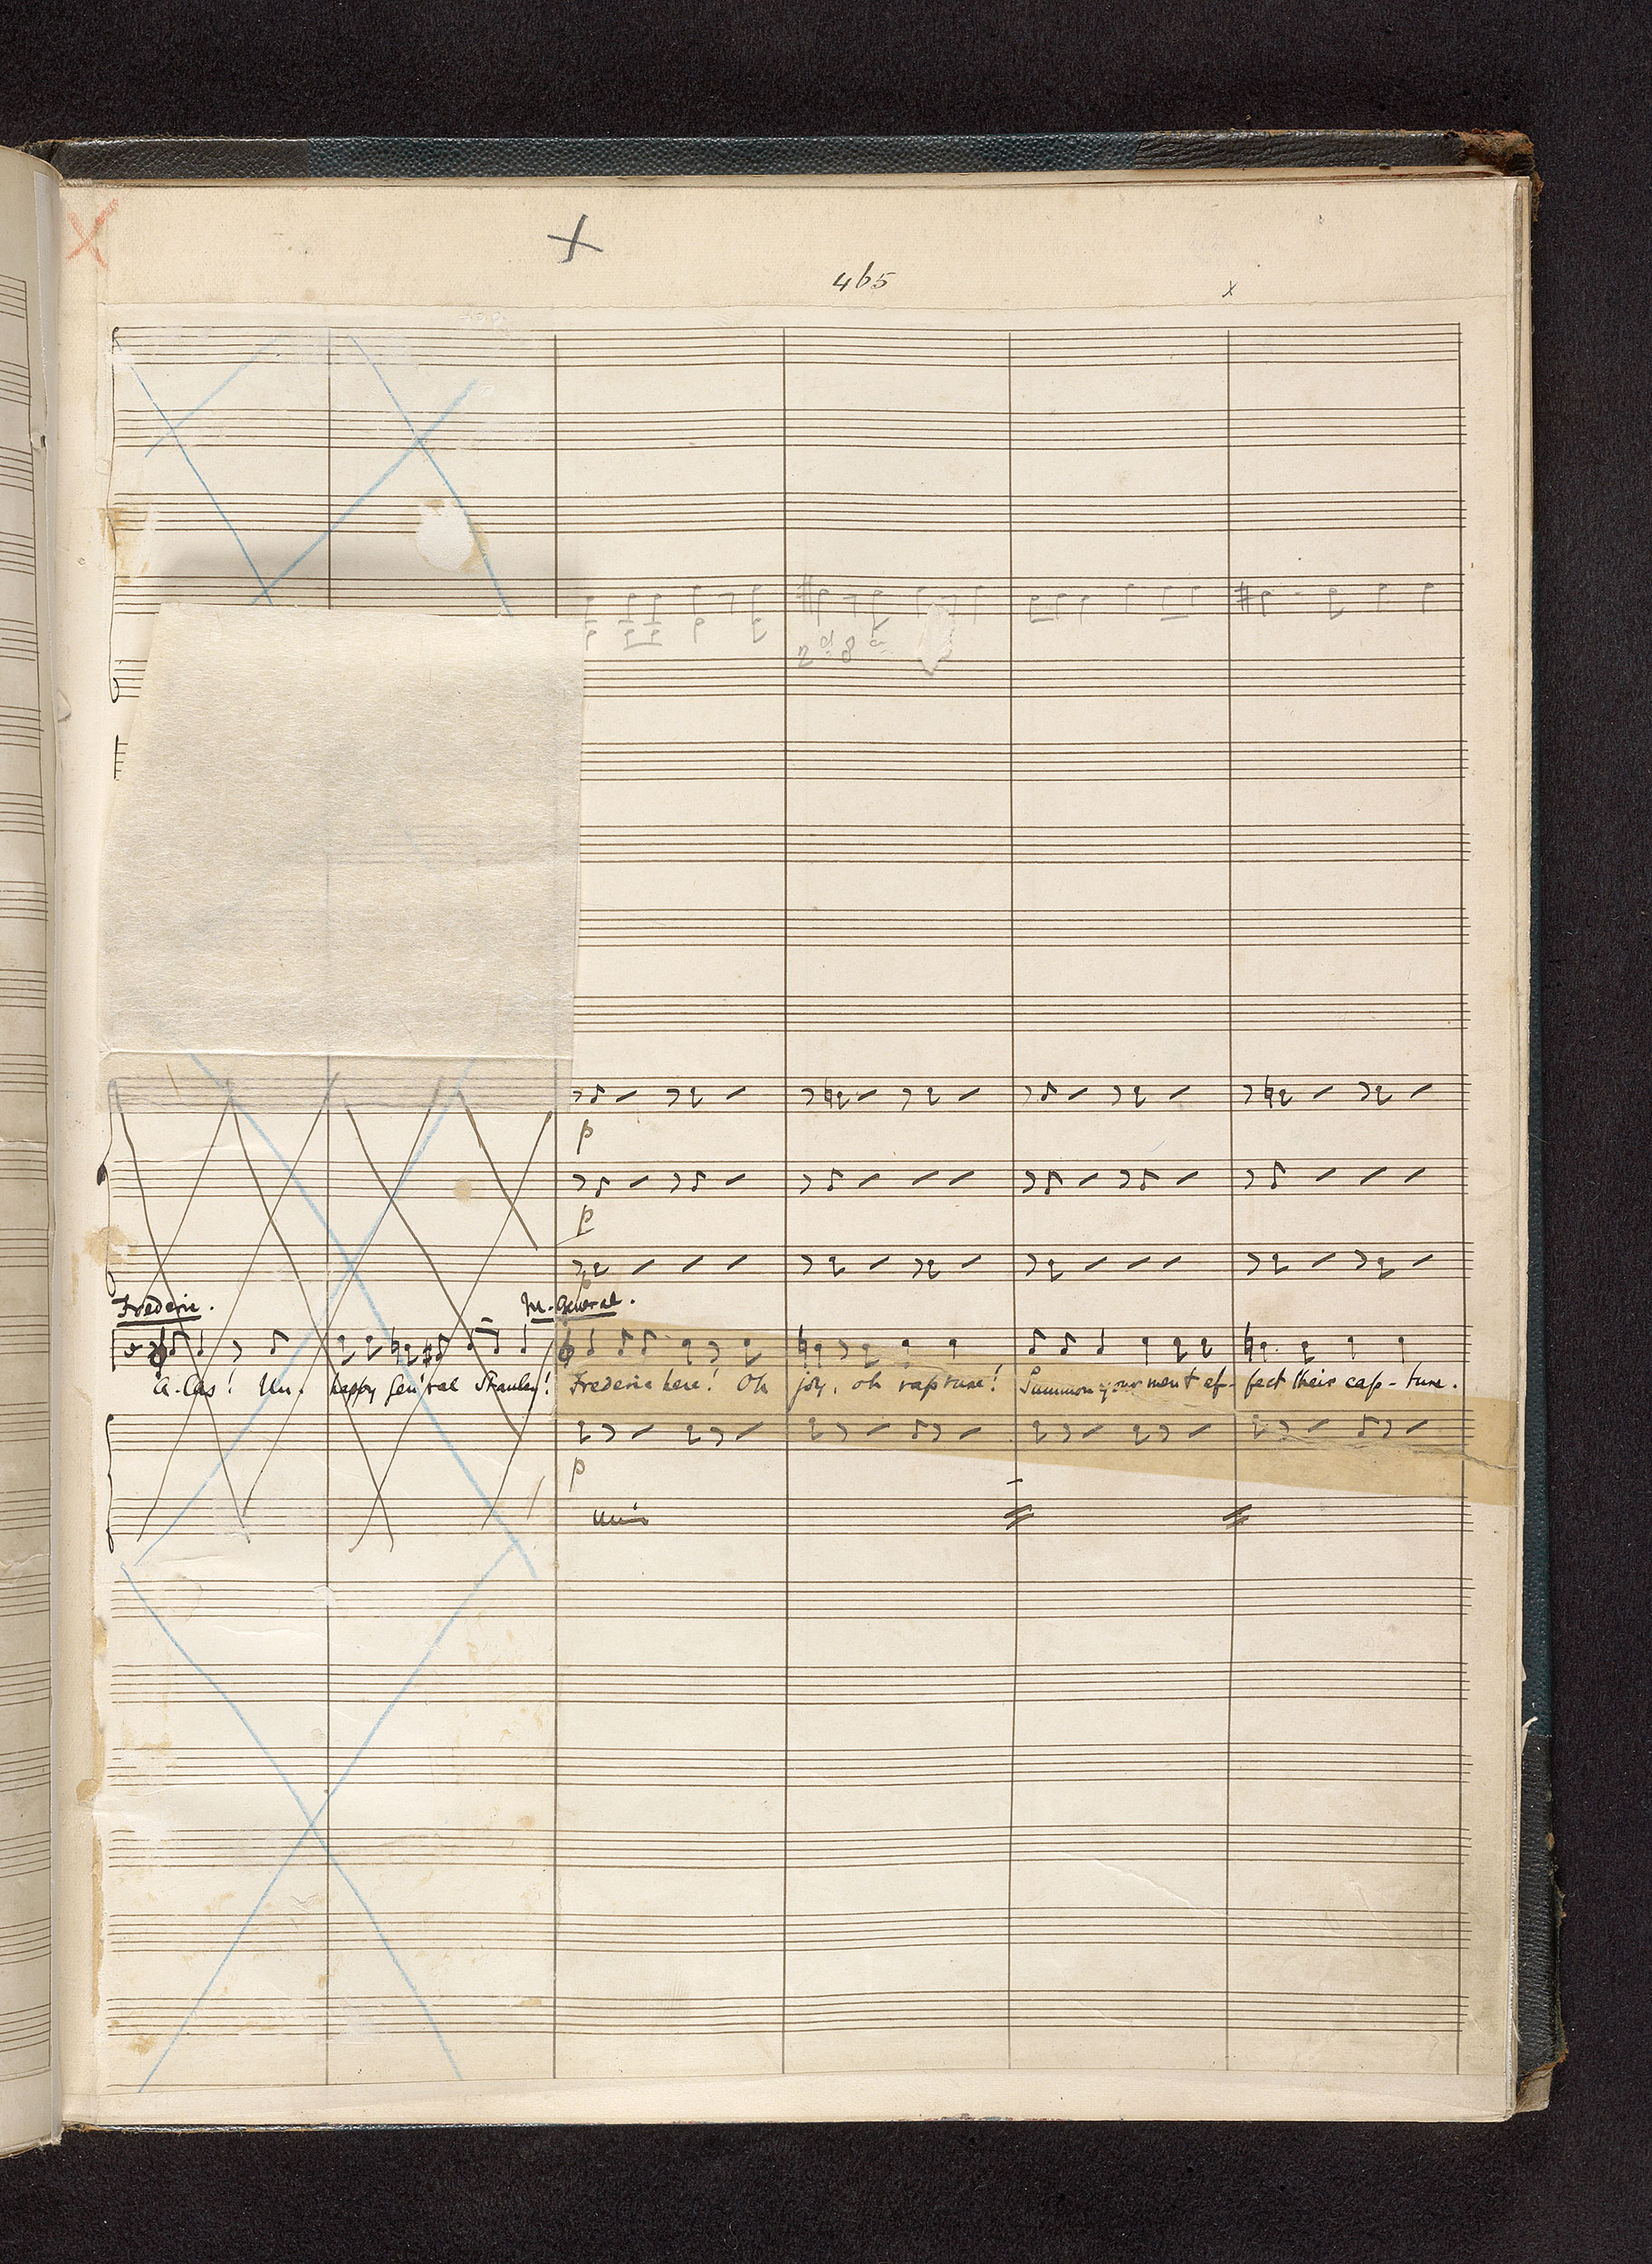 465
2d 8a
p
p
p
Frederic. M-General.
A-las! Un-happy Gen'ral Stanley! Frederic here! Oh joy, oh rapture! Summon your men & ef-fect their cap-ture.
p
unis